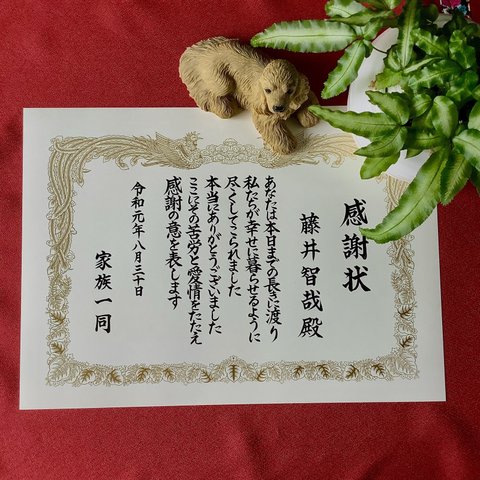 感謝状
藤井智哉殿
あなたは本日までの長きに渡り
私たちが幸せに暮らせるように
尽くしてこられました
本当にありがとうございました
ここにその苦労と愛情をたたえ
感謝の意を表します
令和元年八月三十日
家族一同